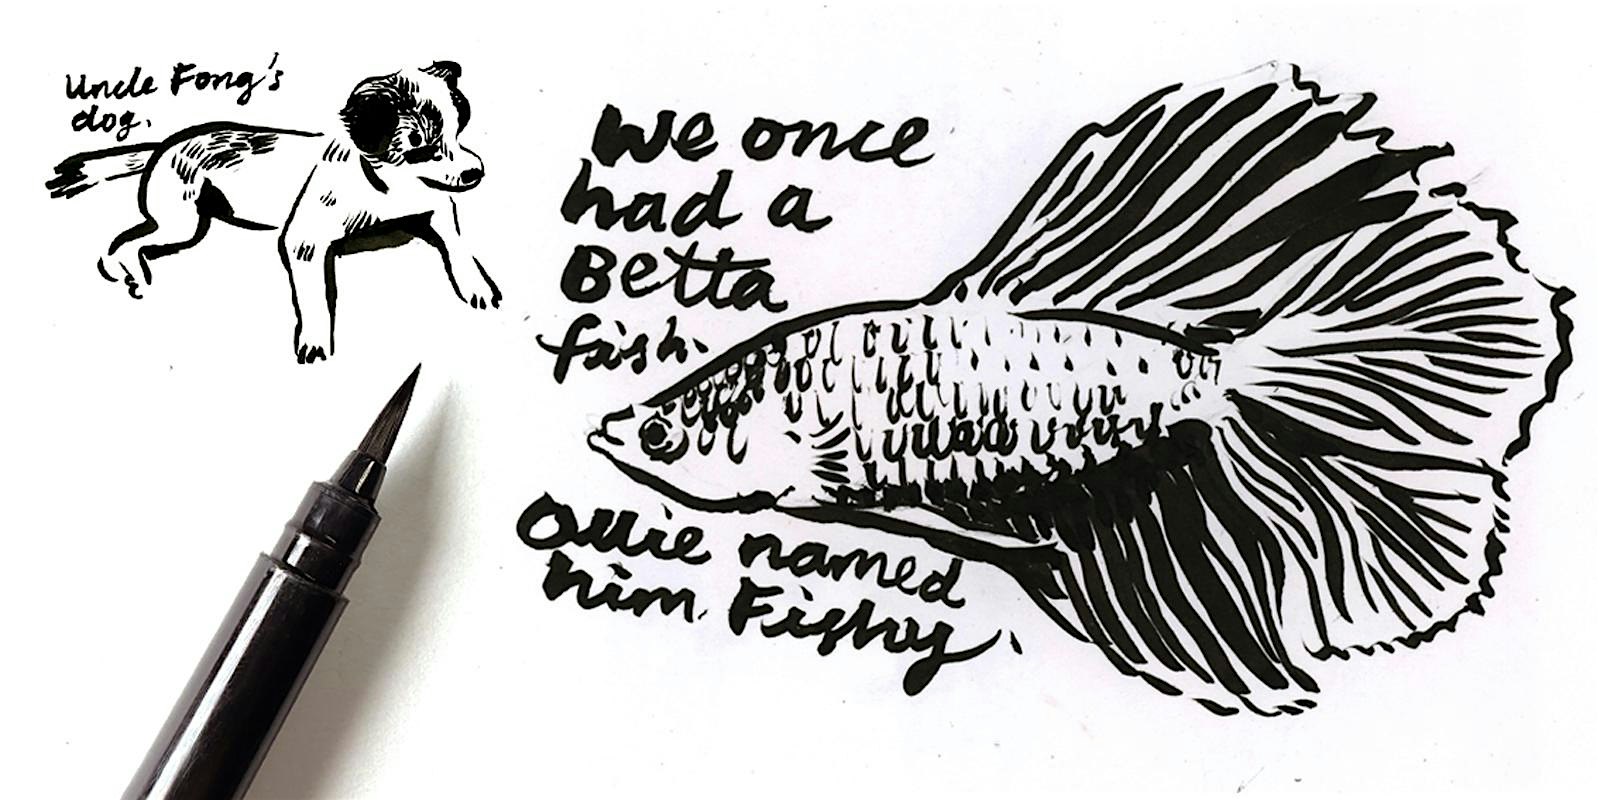 Uncle Fong's
dog.
We once
had a
Betta
fish.
Ollie named
him Fishy.